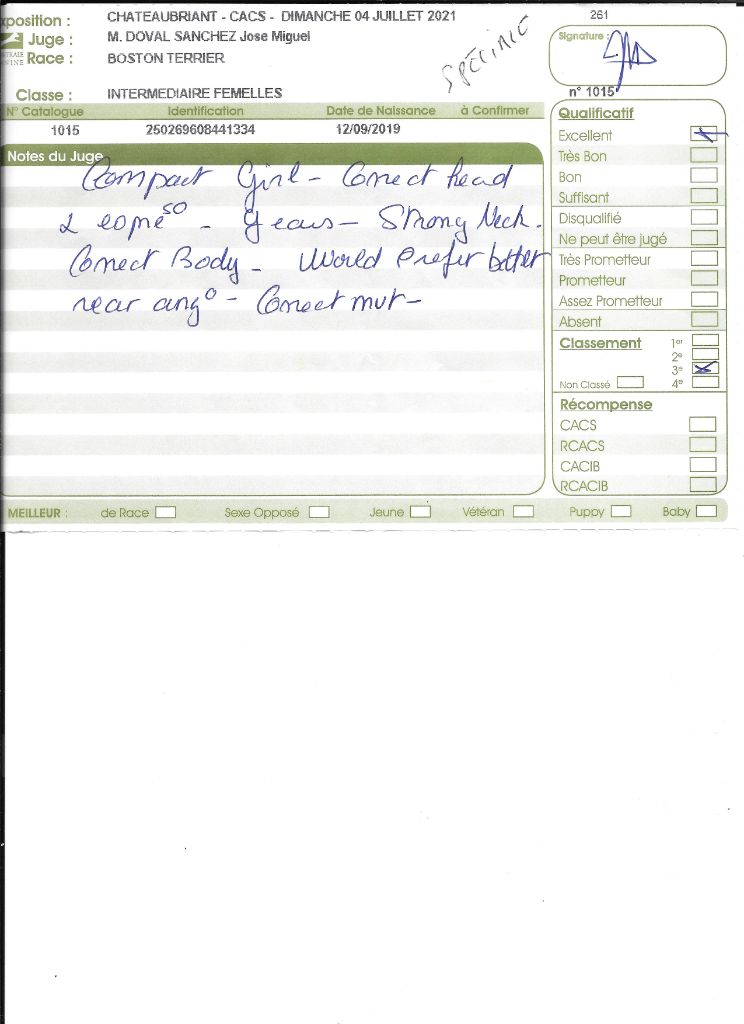 xposition : CHATEAUBRIANT - CACS - DIMANCHE 04 JUILLET 2021
Juge : M. DOVAL SANCHEZ Jose Miguel
Race : BOSTON TERRIER
SPÉCIALE
Classe : INTERMEDIAIRE FEMELLES
N° Catalogue Identification Date de Naissance à Confirmer
1015 250269608441334 12/09/2019
Notes du Juge
Compact Girl - Correct head
& - ears - Strong Neck.
Correct Body - World Prefer better
rear ang° - Correct mut -
261
Signature :
n° 1015
Qualificatif
Excellent
Très Bon
Bon
Suffisant
Disqualifié
Ne peut être jugé
Très Prometteur
Prometteur
Assez Prometteur
Absent
Classement 1er
2e
3e
Non Classé 4e
Récompense
CACS
RCACS
CACIB
RCACIB
MEILLEUR : de Race Sexe Opposé Jeune Vétéran Puppy Baby